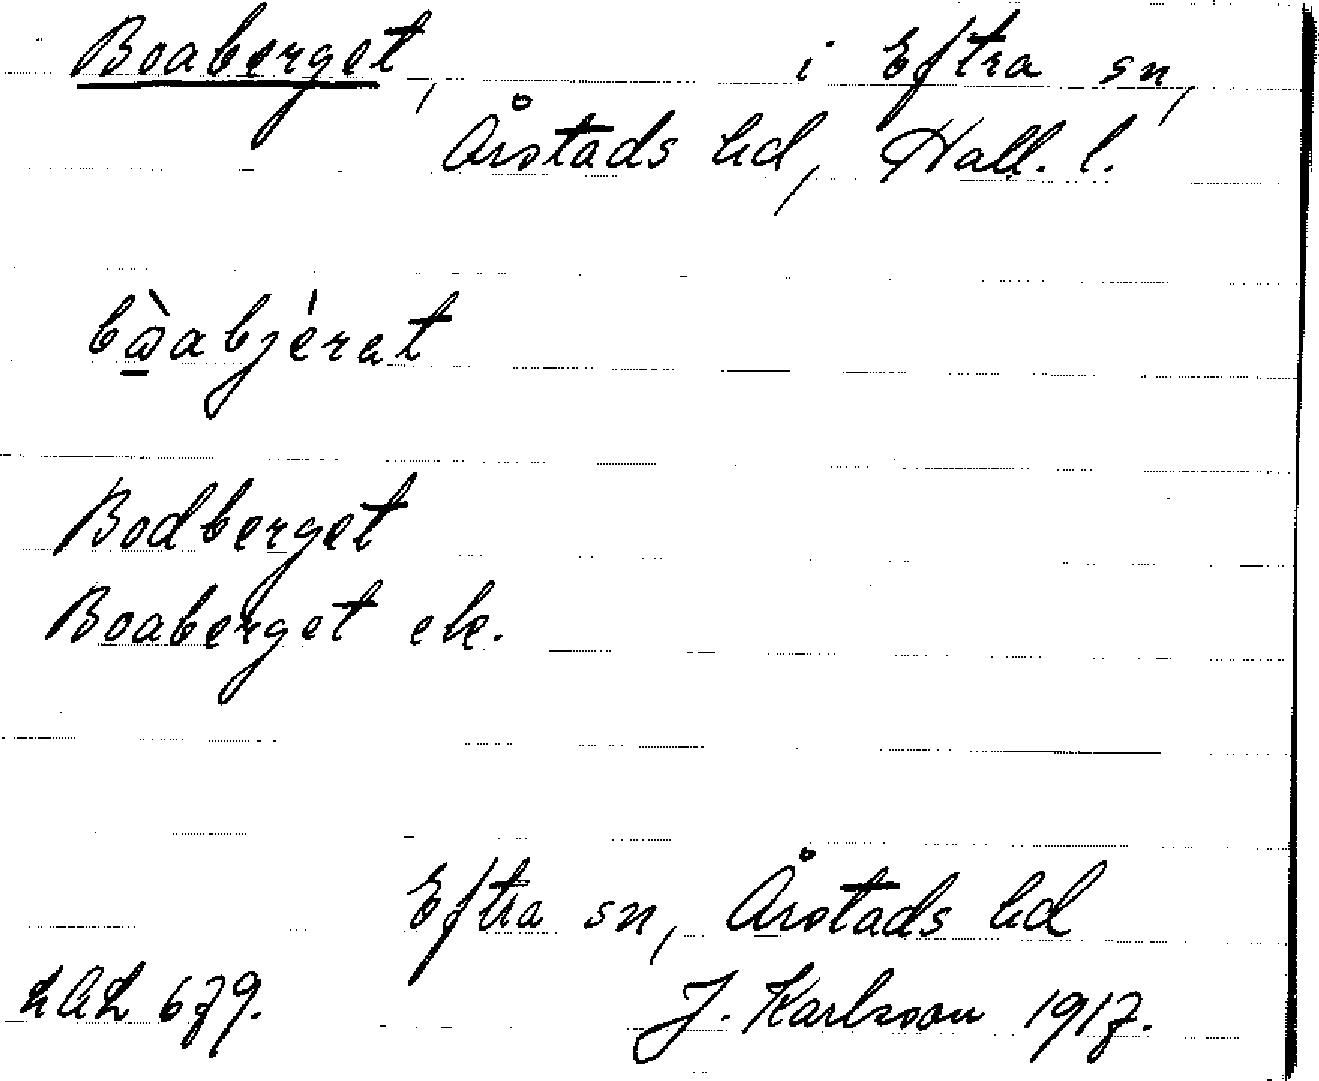 Boaberget, i Eftra sn,
Årstads hd, Hall. l.
bὼ̱abjérat
Bodberget
Boaberget ek.
Eftra sn, Årstads hd
LAL 679. J. Karlsson 1917.